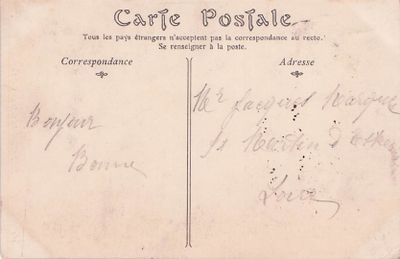 Carte Postale
Tous les pays étrangers n'acceptent pas la correspondance au recto.
Se renseigner à la poste.
Correspondance
Adresse
Bonjour
Bonne
Mr Jacques
St Martin d'
Loire